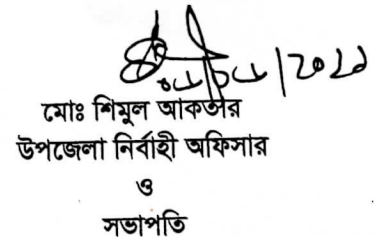 মোঃ শিমুল আকতার
উপজেলা নির্বাহী অফিসার
ও
সভাপতি